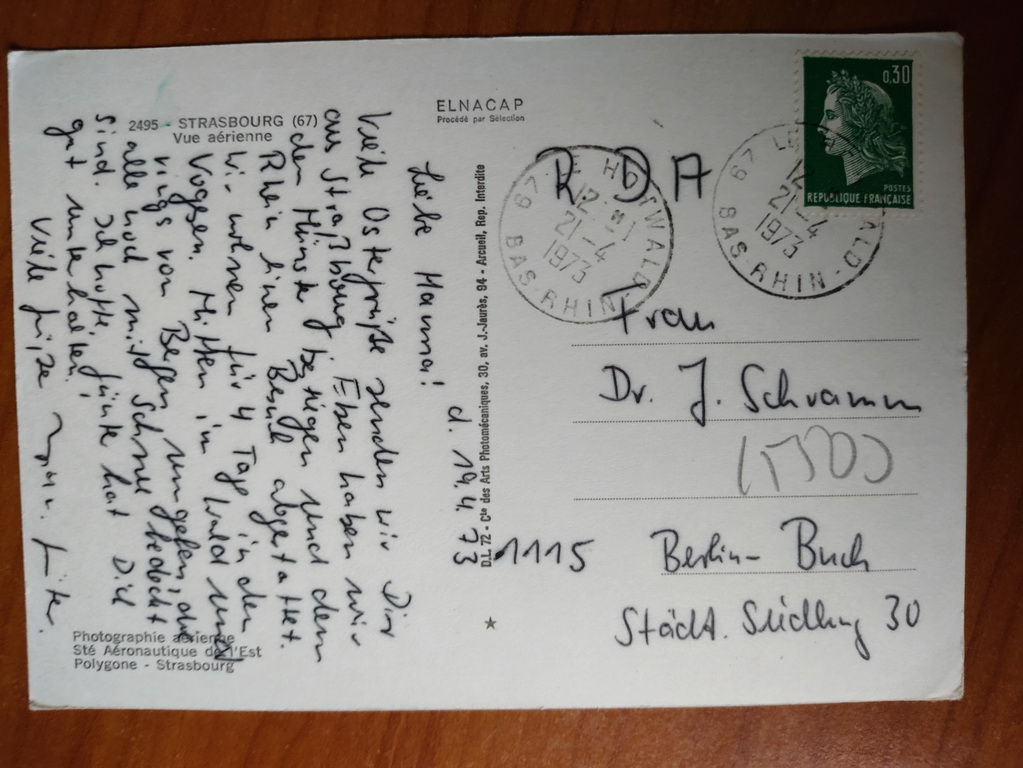 2495 - STRASBOURG (67)
Vue aérienne
ELNACAP
Procédé par Sélection
d. 19.4.73
Liebe Mama!
Viele Ostergrüße senden wir Dir
aus Straßburg. Eben haben wir
dem Münster bestiegen und dem
Rhein einen Besuch abgestattet.
Wir wohnen für 4 Tage in den
Vogesen. Mitten in Wald und
rings von Bergen umgeben, die
alle noch mit Schnee bedeckt
sind. Ich hoffe, hat Dich
gut unterhalten!
Viele Grüße
Photographie aérienne
Sté Aéronautique de l'Est
Polygone - Strasbourg
D.L. 72 - Cie des Arts Photomécaniques, 30, av. J.-Jaurès, 94 - Arcueil, Rep. Interdite
R D A
0,30
POSTES
REPUBLIQUE FRANÇAISE
67 LE HOHWALD
12 H
21-4
1973
BAS-RHIN
67 LE HOHWALD
12
21-4
1973
BAS-RHIN
Frau
Dr. J. Schramm
1115 Berlin-Buch
Städt. Siedlung 30